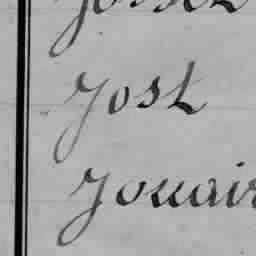 Jost
Jouair